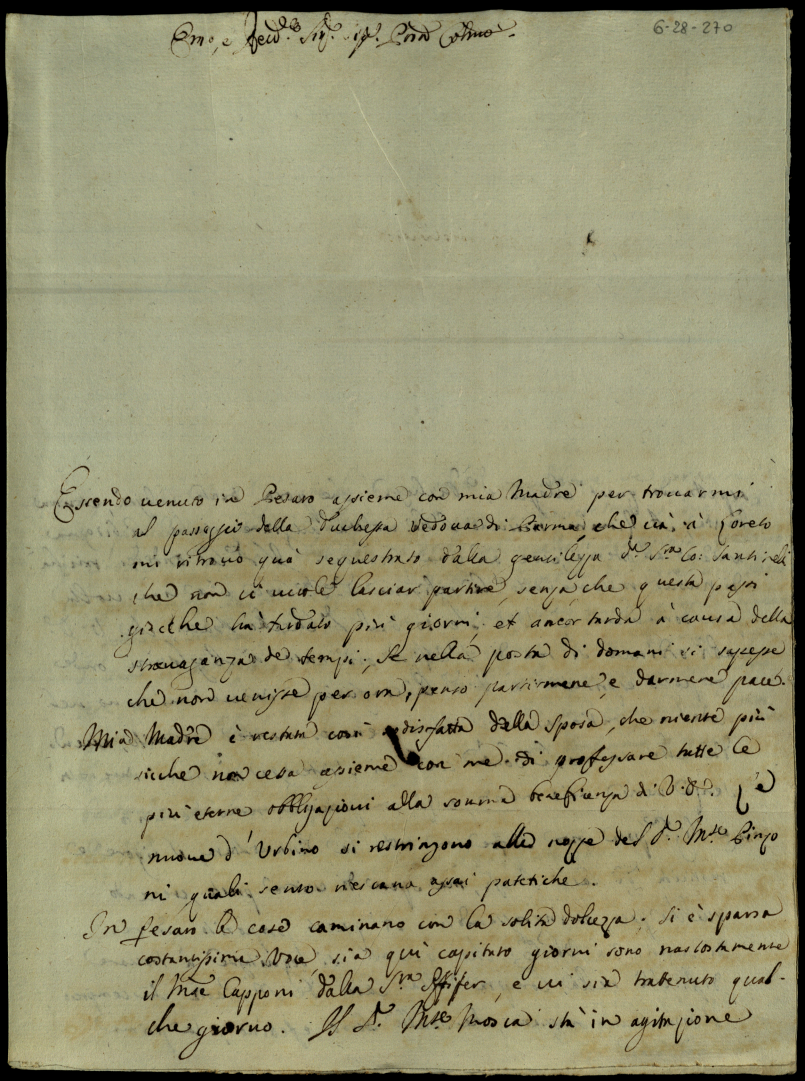 6-28-270
Essendo venuto in Pesaro assieme con mia Madre per trovarmi
al passaggio della Duchessa Vedova di Parma che và à Loreto
mi ritrovo quà sequestrato dalla gentilezza dl Sra Co: Santinelli
che non ci vuole lasciar partire, senza che questa passi
giacche hà tardato più giorni, et ancor tarda à causa della
stravaganza de tempi, se nella posta di domani si sapesse
che non venisse per ora, penso partirmene, e darmene pace.
Mia Madre è restata così sodisfatta della sposa, che niente più
sicche non cessa assieme con me di professare tutte le
più eterne obbligazioni alla somma beneficenza di V.E. Le
nuove d'Urbino si restringono alle nozze del Sr. Mse
ni quali sento riescano assai patetiche.
In Pesaro le cose caminano con la solita dolcezza; Si è sparsa
costantissima voce, sia quì capitato giorni sono nascostamente
il Mse Capponi dalla Sra, e vi sia trattenuto qual-
che giorno. Il Sr. Mse Mosca stà in agitazione